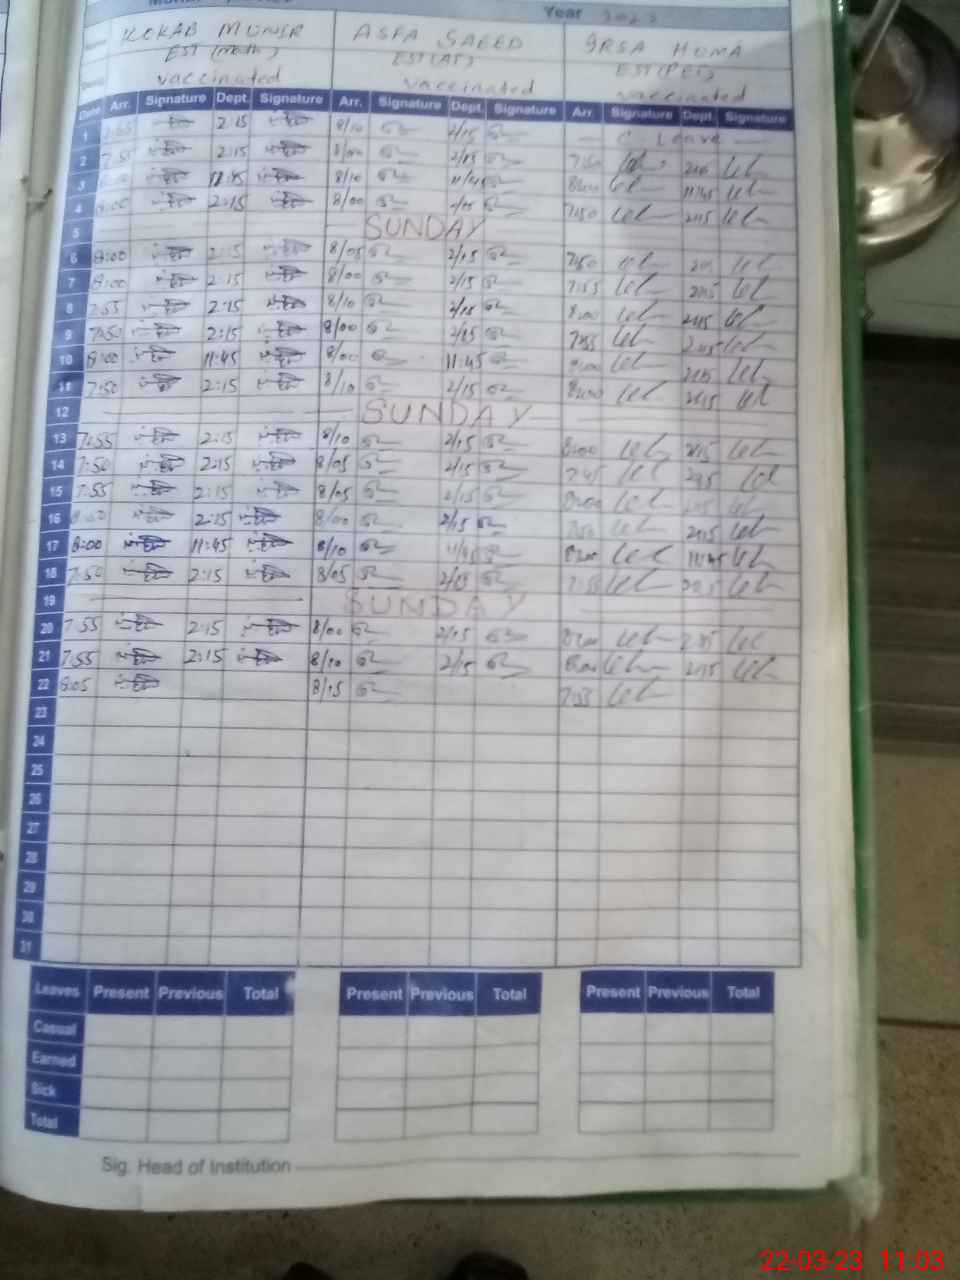 Year 2023
KOKAB MUNIR ASFA SAEED IRSA HUMA
EST (Math) EST (AT) EST (PET)
vaccinated vaccinated vaccinated
Date Arr. Signature Dept. Signature Arr. Signature Dept. Signature Arr. Signature Dept. Signature
1 7:55 2:15 8/10 2/15 C Leave
2 7:55 2:15 8/00 2/15 7:50
3 11:45 8/10 11/45 8:00 11:45
4 8:00 2:15 8/00 2/15 7:50 2:15
5 SUNDAY
6 8:00 2:15 8/05 2/15 7:50
7 8:00 2:15 8/00 2/15 7:55 2:15
8 7:55 2:15 8/10 2/15 8:00 2:15
9 7:50 2:15 8/00 2/15 7:55 2:15
10 8:00 11:45 8/00 11:45
11 7:50 2:15 8/10 2/15 8:00 2:15
12 SUNDAY
13 7:55 2:15 8/10 2/15 8:00 2:15
14 7:50 2:15 8/05 2/15 7:45 2:15
15 7:55 2:15 8/05 2/15 8:00
16 2:15 8/00 2/15 7:50 2:15
17 8:00 11:45 8/10 11/45 8:00 11:45
18 7:50 2:15 8/05 2/15 7:55 2:15
19 SUNDAY
20 7:55 2:15 8/00 2/15 8:00 2:15
21 7:55 2:15 8/10 2/15 8:00 2:15
22 8:05 8/15 7:55
23
24
25
26
27
28
29
30
31
Leaves Present Previous Total Present Previous Total Present Previous Total
Casual
Earned
Sick
Total
Sig. Head of Institution
22-03-23 11:03